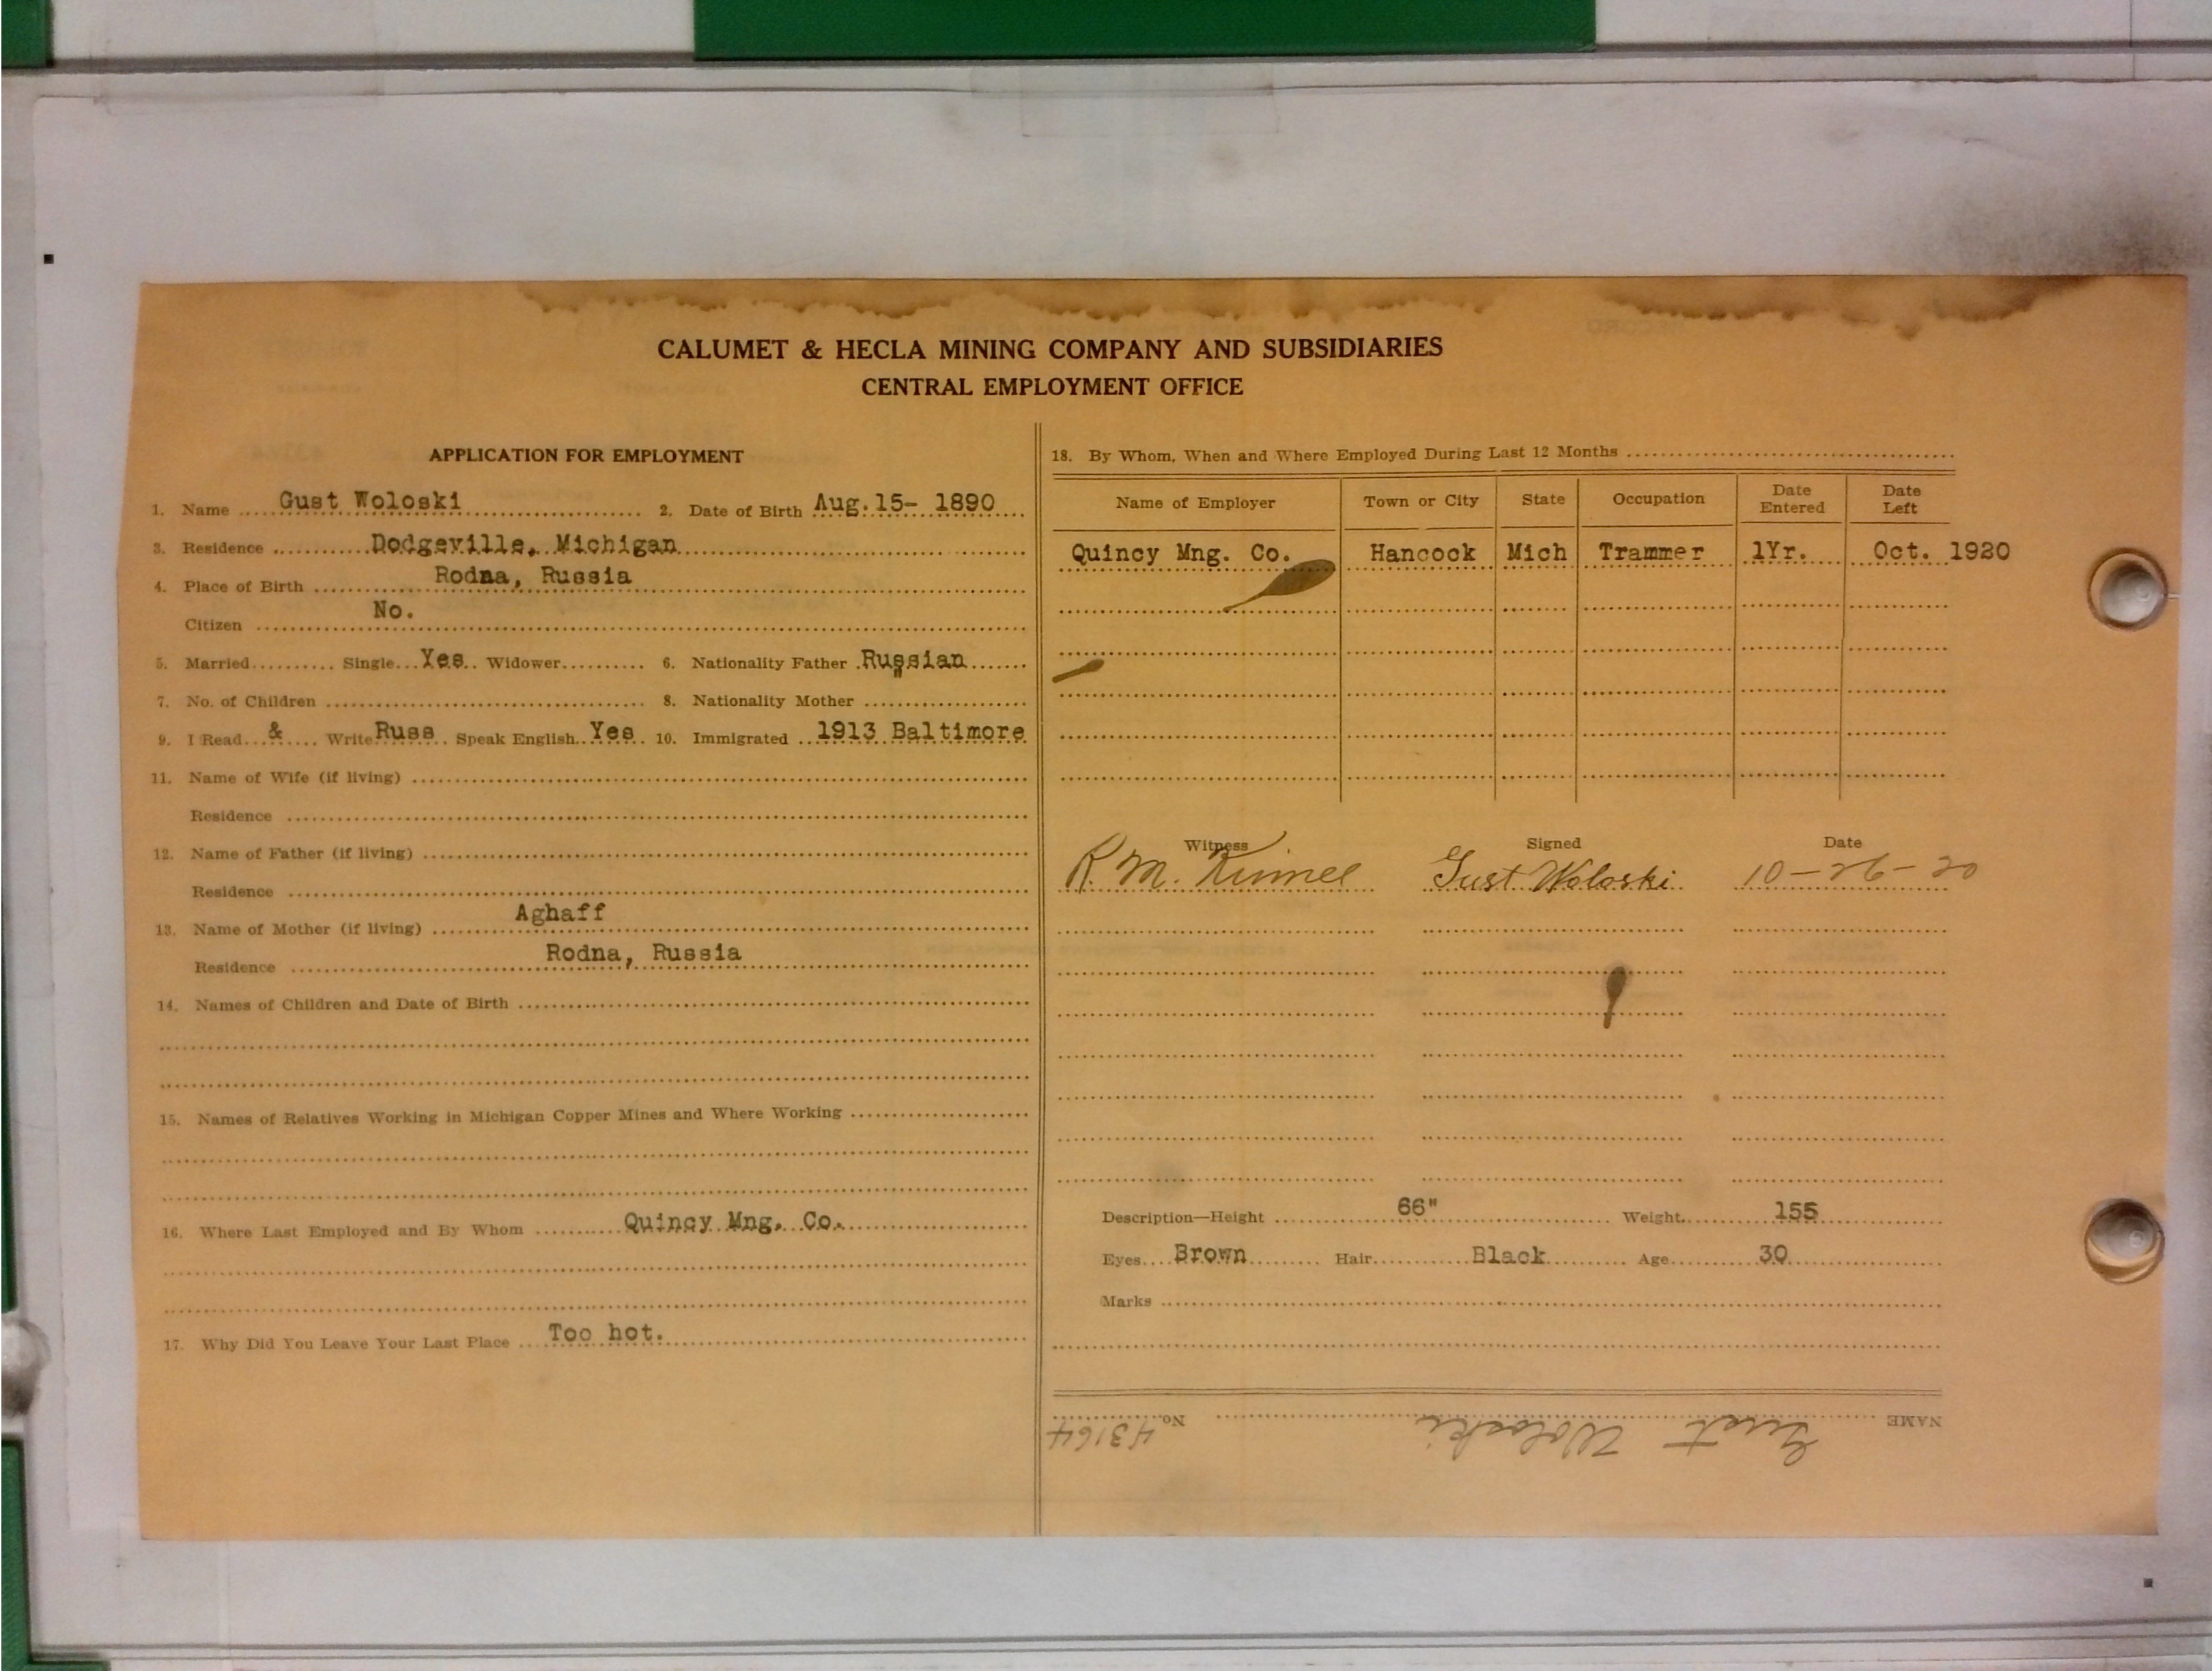 CALUMET & HECLA MINING COMPANY AND SUBSIDIARIES
CENTRAL EMPLOYMENT OFFICE
APPLICATION FOR EMPLOYMENT
1. Name Gust Woloski 2. Date of Birth Aug.15- 1890
3. Residence Dodgeville, Michigan
4. Place of Birth Rodna, Russia
Citizen No.
5. Married Single Yes Widower 6. Nationality Father Russian
7. No. of Children 8. Nationality Mother "
9. I Read & Write Russ Speak English Yes 10. Immigrated 1913 Baltimore
11. Name of Wife (if living)
Residence
12. Name of Father (if living)
Residence
13. Name of Mother (if living) Aghaff
Residence Rodna, Russia
14. Names of Children and Date of Birth
15. Names of Relatives Working in Michigan Copper Mines and Where Working
16. Where Last Employed and By Whom Quincy Mng. Co.
17. Why Did You Leave Your Last Place Too hot.
18. By Whom, When and Where Employed During Last 12 Months
Name of Employer Town or City State Occupation Date Entered Date Left
Quincy Mng. Co. Hancock Mich Trammer 1Yr. Oct. 1920
Witness Signed Date
R. M. Gust Woloski 10-26-20
Description—Height 66" Weight 155
Eyes Brown Hair Black Age 30
Marks
NAME Gust Woloski No. 43164